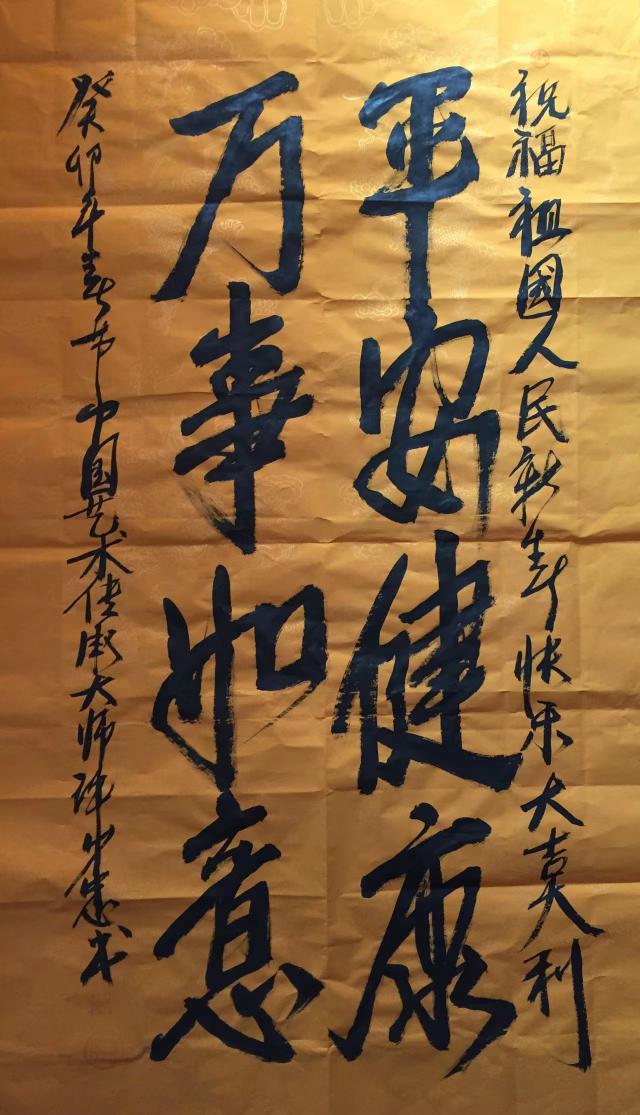 祝福祖國人民新年快乐大吉大利
平安健康
万事如意
癸卯年春节中国艺术传承大师